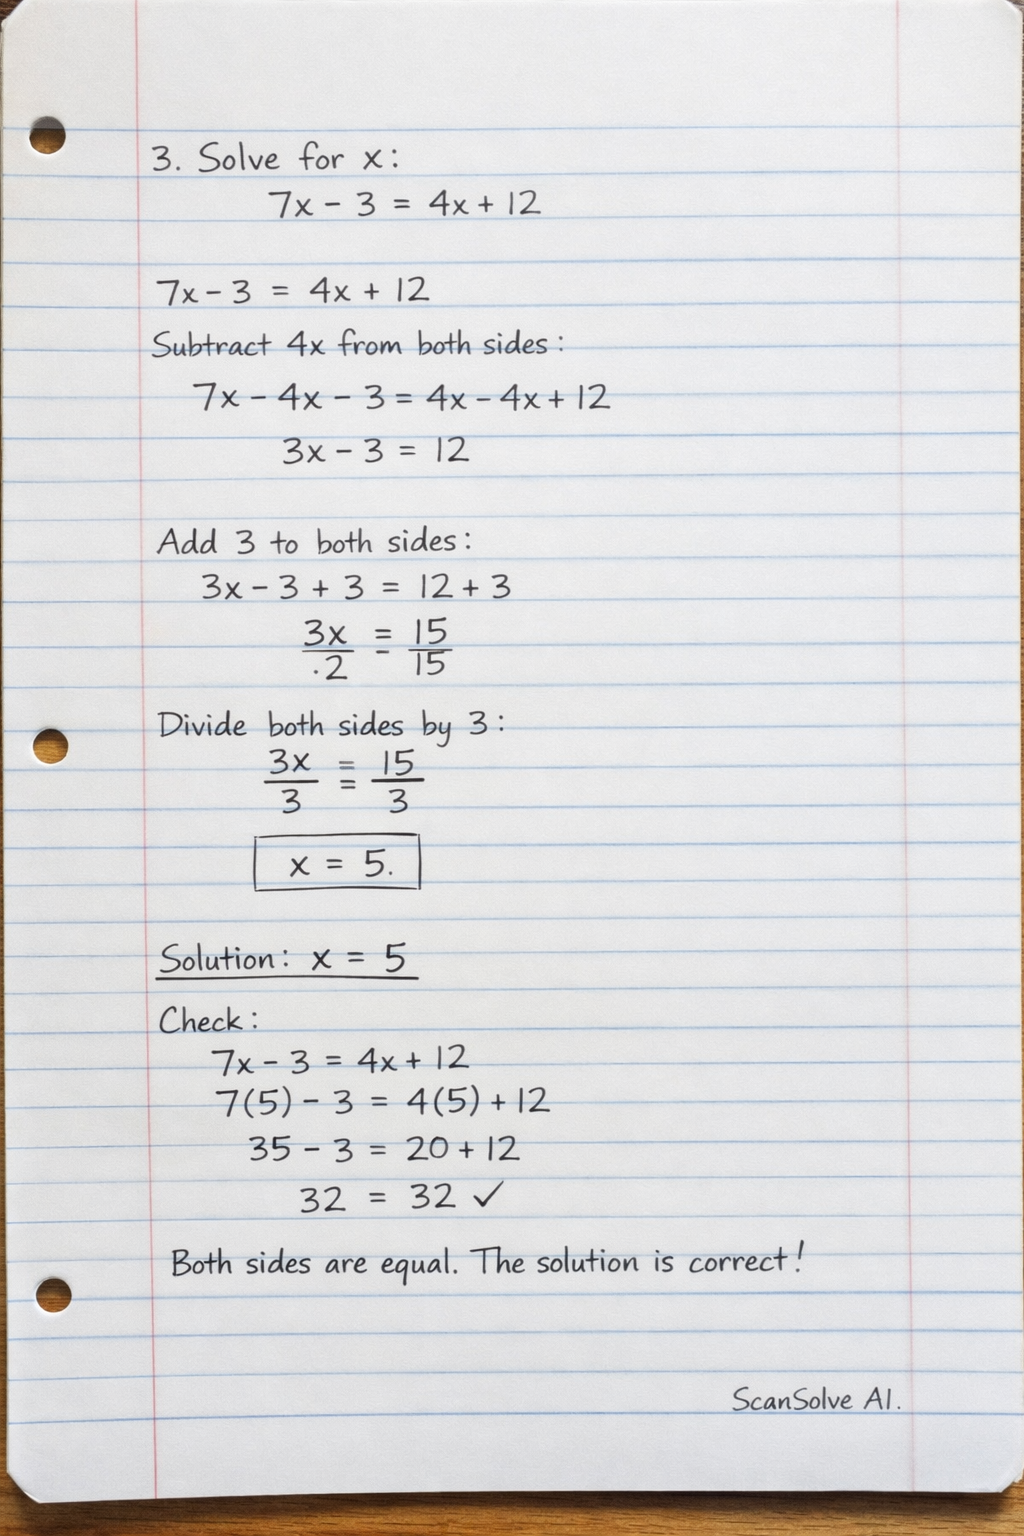 3. Solve for x:
7x - 3 = 4x + 12
7x - 3 = 4x + 12
Subtract 4x from both sides:
7x - 4x - 3 = 4x - 4x + 12
3x - 3 = 12
Add 3 to both sides:
3x - 3 + 3 = 12 + 3
3x = 15
.2 - 15
Divide both sides by 3:
3x = 15
3 = 3
x = 5.
Solution: x = 5
Check:
7x - 3 = 4x + 12
7(5) - 3 = 4(5) + 12
35 - 3 = 20 + 12
32 = 32 ✓
Both sides are equal. The solution is correct!
ScanSolve AI.